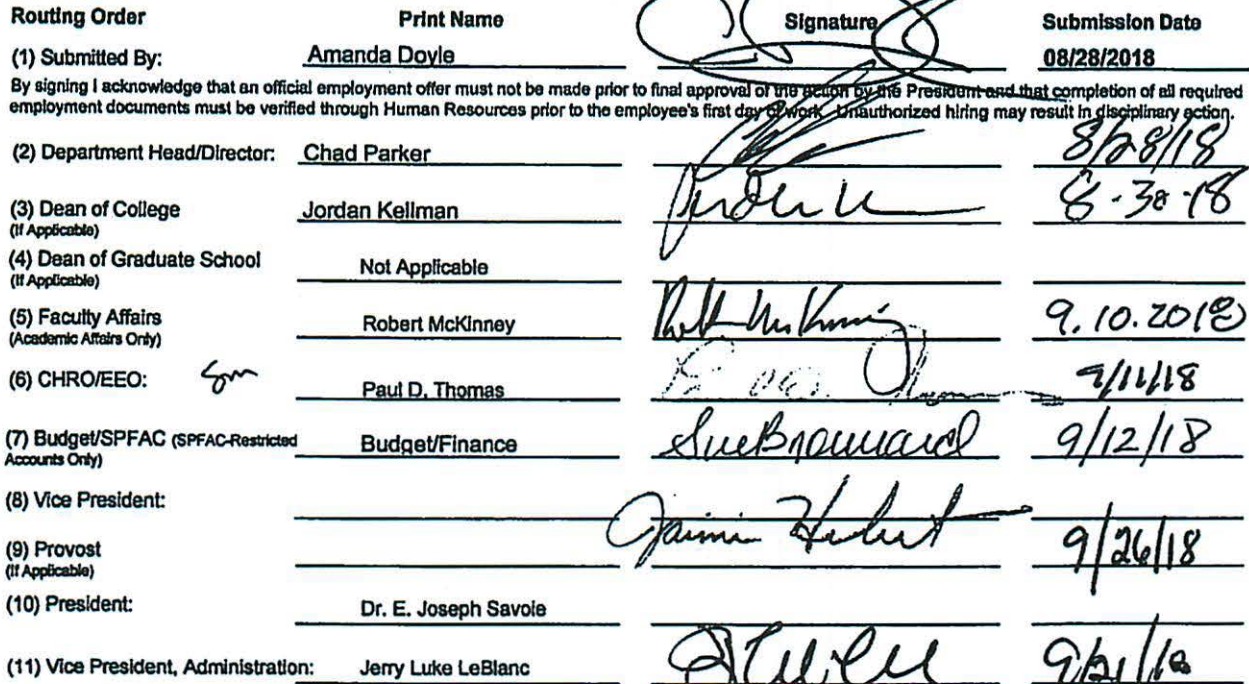 Routing Order Print Name Signature Submission Date
(1) Submitted By: Amanda Doyle 08/28/2018
By signing I acknowledge that an official employment offer must not be made prior to final approval of the action by the President and that completion of all required
employment documents must be verified through Human Resources prior to the employee's first day of work. Unauthorized hiring may result in disciplinary action.
(2) Department Head/Director: Chad Parker 8/28/18
(3) Dean of College Jordan Kellman 8-30-18
(If Applicable)
(4) Dean of Graduate School Not Applicable
(If Applicable)
(5) Faculty Affairs Robert McKinney 9.10.2018
(Academic Affairs Only)
(6) CHRO/EEO: Paul D. Thomas 9/11/18
(7) Budget/SPFAC (SPFAC-Restricted Budget/Finance Sue Broussard 9/12/18
Accounts Only)
(8) Vice President:
Jaimie Hebert
(9) Provost 9/26/18
(If Applicable)
(10) President: Dr. E. Joseph Savoie
(11) Vice President, Administration: Jerry Luke LeBlanc 9/21/18